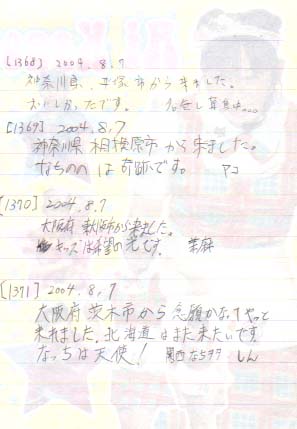 [1368] 2004.8.7
神奈川県、平塚市から来ました。
おいしかったです。
[1369] 2004.8,7
神奈川県 相模原市 から来ました。
なちのへは奇跡です。 アコ
[1370] 2004.8.7
大阪府 東大阪市から来ました。
キッズは希望の光です。
[1371] 2004.8,7
大阪府 茨木市から念願かなってやっと
来れました。北海道はまた来たいです。
なっちは天使! 関西なちヲタ しん